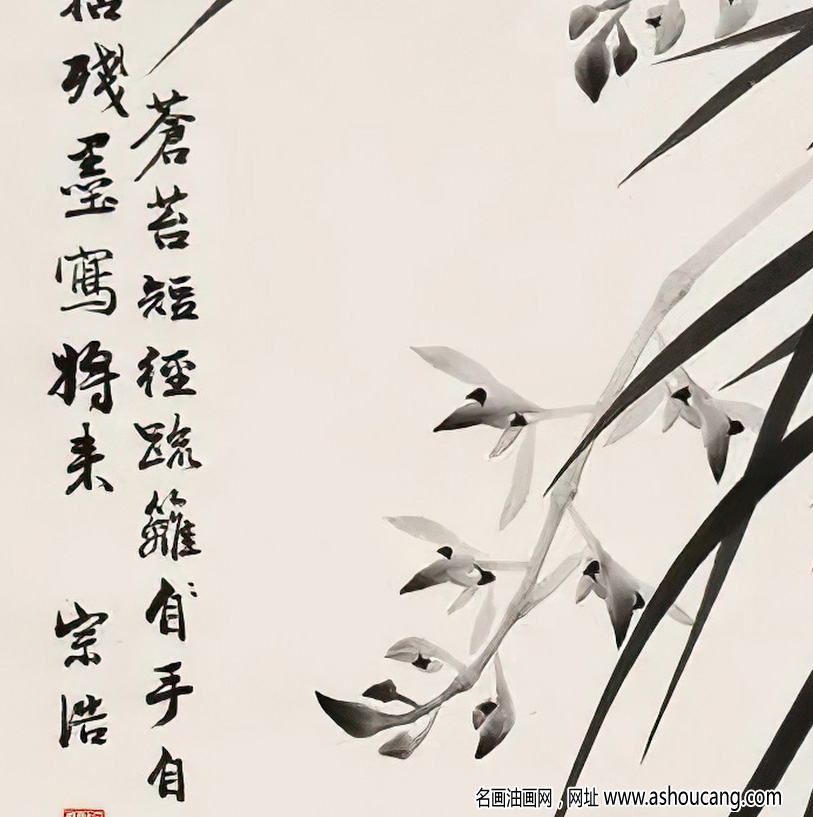 蒼苔短徑疏籬自手自
殘墨寫將來
宗浩
名画油画网，网址 www.ashoucang.com